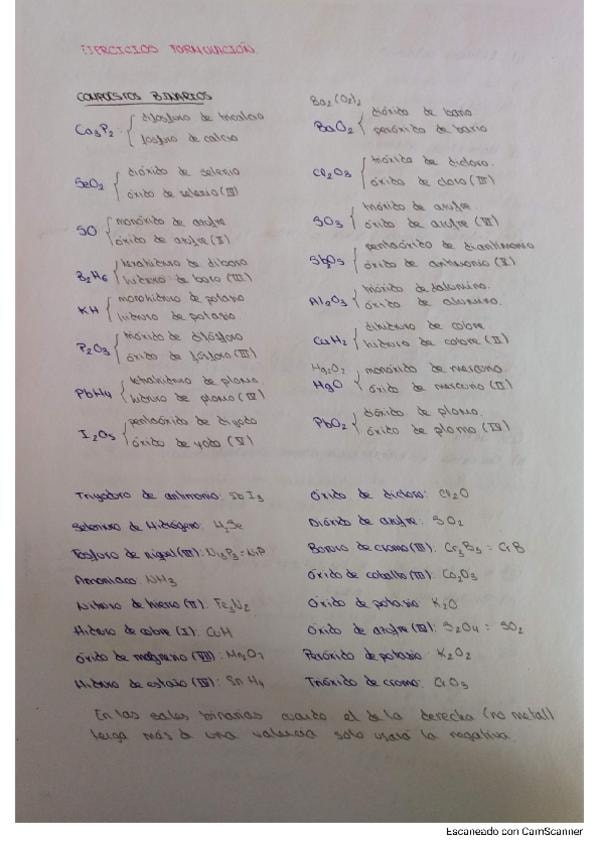 EJERCICIOS FORMULACIÓN
COMPUESTOS BINARIOS
Ca3P2: difosfuro de tricalcio
fosfuro de calcio
SeO2 dióxido de selenio
óxido de selenio (IV)
SO monóxido de azufre
óxido de azufre (II)
B2H6 hexahidruro de diboro
hidruro de boro (III)
KH monohidruro de potasio
hidruro de potasio
P2O3 trióxido de difósforo
óxido de fósforo (III)
PbH4 tetrahidruro de plomo
hidruro de plomo (IV)
I2O5 pentaóxido de diyodo
óxido de yodo (V)
Ba2(O2)2
BaO2 dióxido de bario
peróxido de bario
Cl2O3 trióxido de dicloro.
óxido de cloro (III)
SO3 trióxido de azufre
óxido de azufre (VI)
Sb2O5 pentaóxido de diantimonio
óxido de antimonio (V)
Al2O3 trióxido de dialuminio.
óxido de aluminio.
CuH2 dihidruro de cobre
hidruro de cobre (II)
Hg2O2
HgO monóxido de mercurio
óxido de mercurio (II)
PbO2 dióxido de plomo.
óxido de plomo (IV)
Triyoduro de antimonio: SbI3
Seleniuro de Hidrógeno: H2Se
Fosfuro de níquel (III): Ni3P3 = NiP
Amoniaco: NH3
Nitruro de hierro (II): Fe3N2
Hidruro de cobre (I): CuH
óxido de manganeso (VII): Mn2O7
Hidruro de estaño (IV): SnH4
Óxido de dicloro: Cl2O
Dióxido de azufre: SO2
Boruro de cromo (III): Cr3B3 = CrB
óxido de cobalto (III): Co2O3
Óxido de potasio K2O
Óxido de azufre (IV): S2O4 = SO2
Peróxido de potasio: K2O2
Trióxido de cromo: CrO3
En las sales binarias cuando el de la derecha (no metal)
tenga más d una valencia solo usará la negativa.
Escaneado con CamScanner